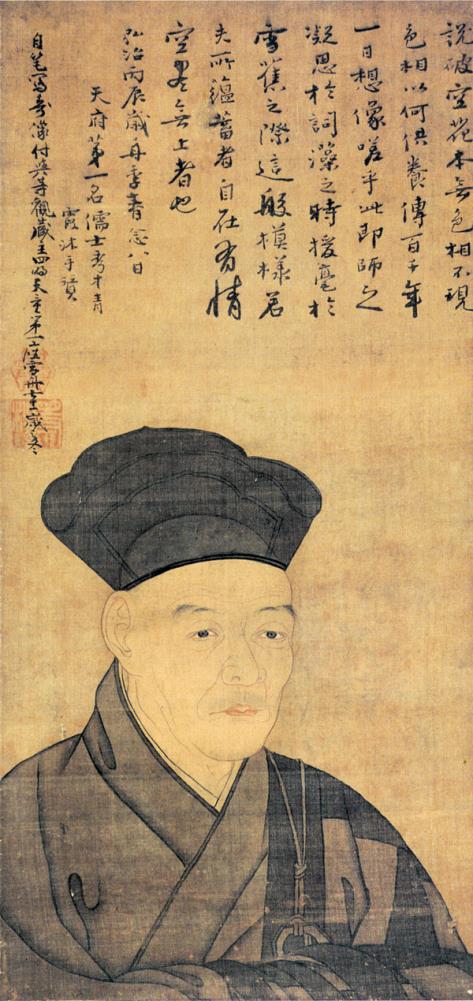 説破空花本無色相不現
色相以何供養傳百千年
一日想像嗟乎此即師之
凝思於詞藻之時援毫於
雪蕉之際這般模様若
夫所蘊蓄者自在有情
空無上者也
弘治丙辰歳季春念八日
天府第一名儒士考中青
霞沐手賛
自筆寫壽像付與等觀藏主四明天童第一座雪舟七十一歳冬